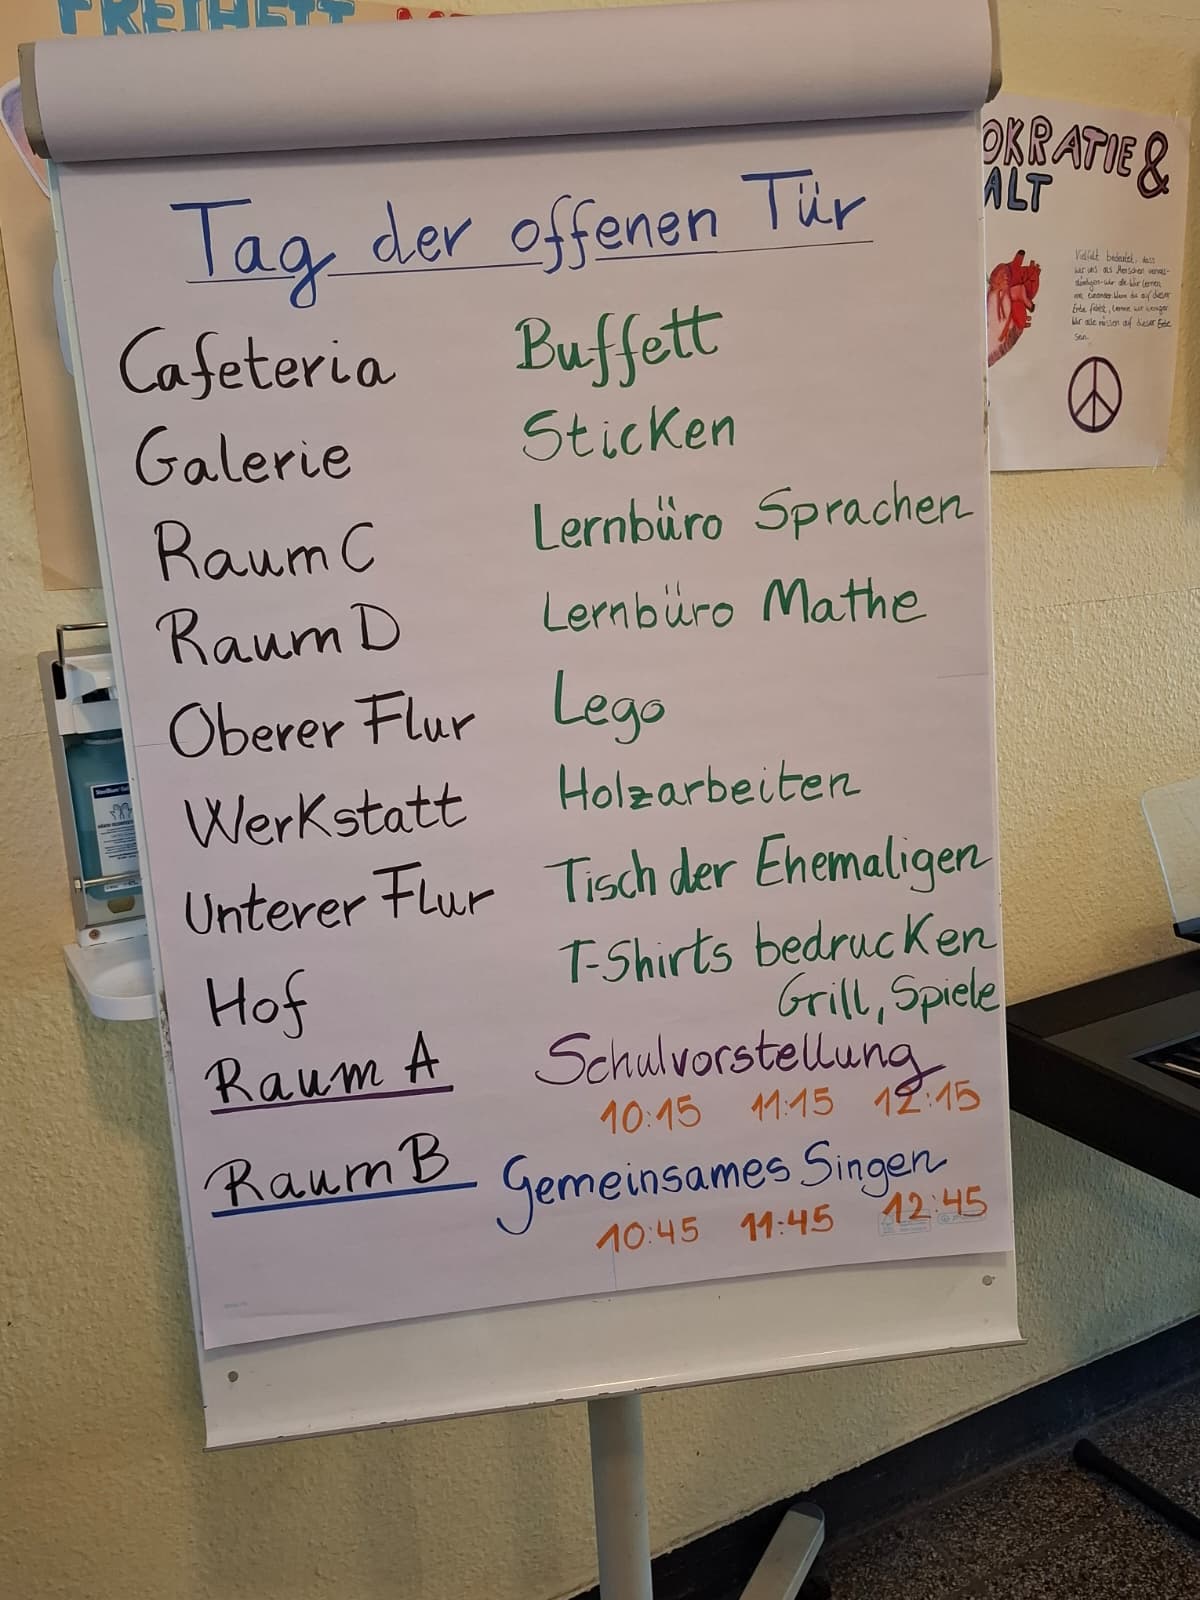 FREIHEIT
Tag der offenen Tür
Cafeteria Buffett
Galerie Sticken
Raum C Lernbüro Sprachen
Raum D Lernbüro Mathe
Oberer Flur Lego
Werkstatt Holzarbeiten
Unterer Flur Tisch der Ehemaligen
Hof T-Shirts bedrucken
Grill, Spiele
Raum A Schulvorstellung
10:15 11:15 12:15
Raum B Gemeinsames Singen
10:45 11:45 12:45
OKRATIE &
ALT
Vielfalt bedeutet, dass
wir uns als Menschen
wir alle
auf dieser
Wir alle müssen auf dieser Erde
sein.